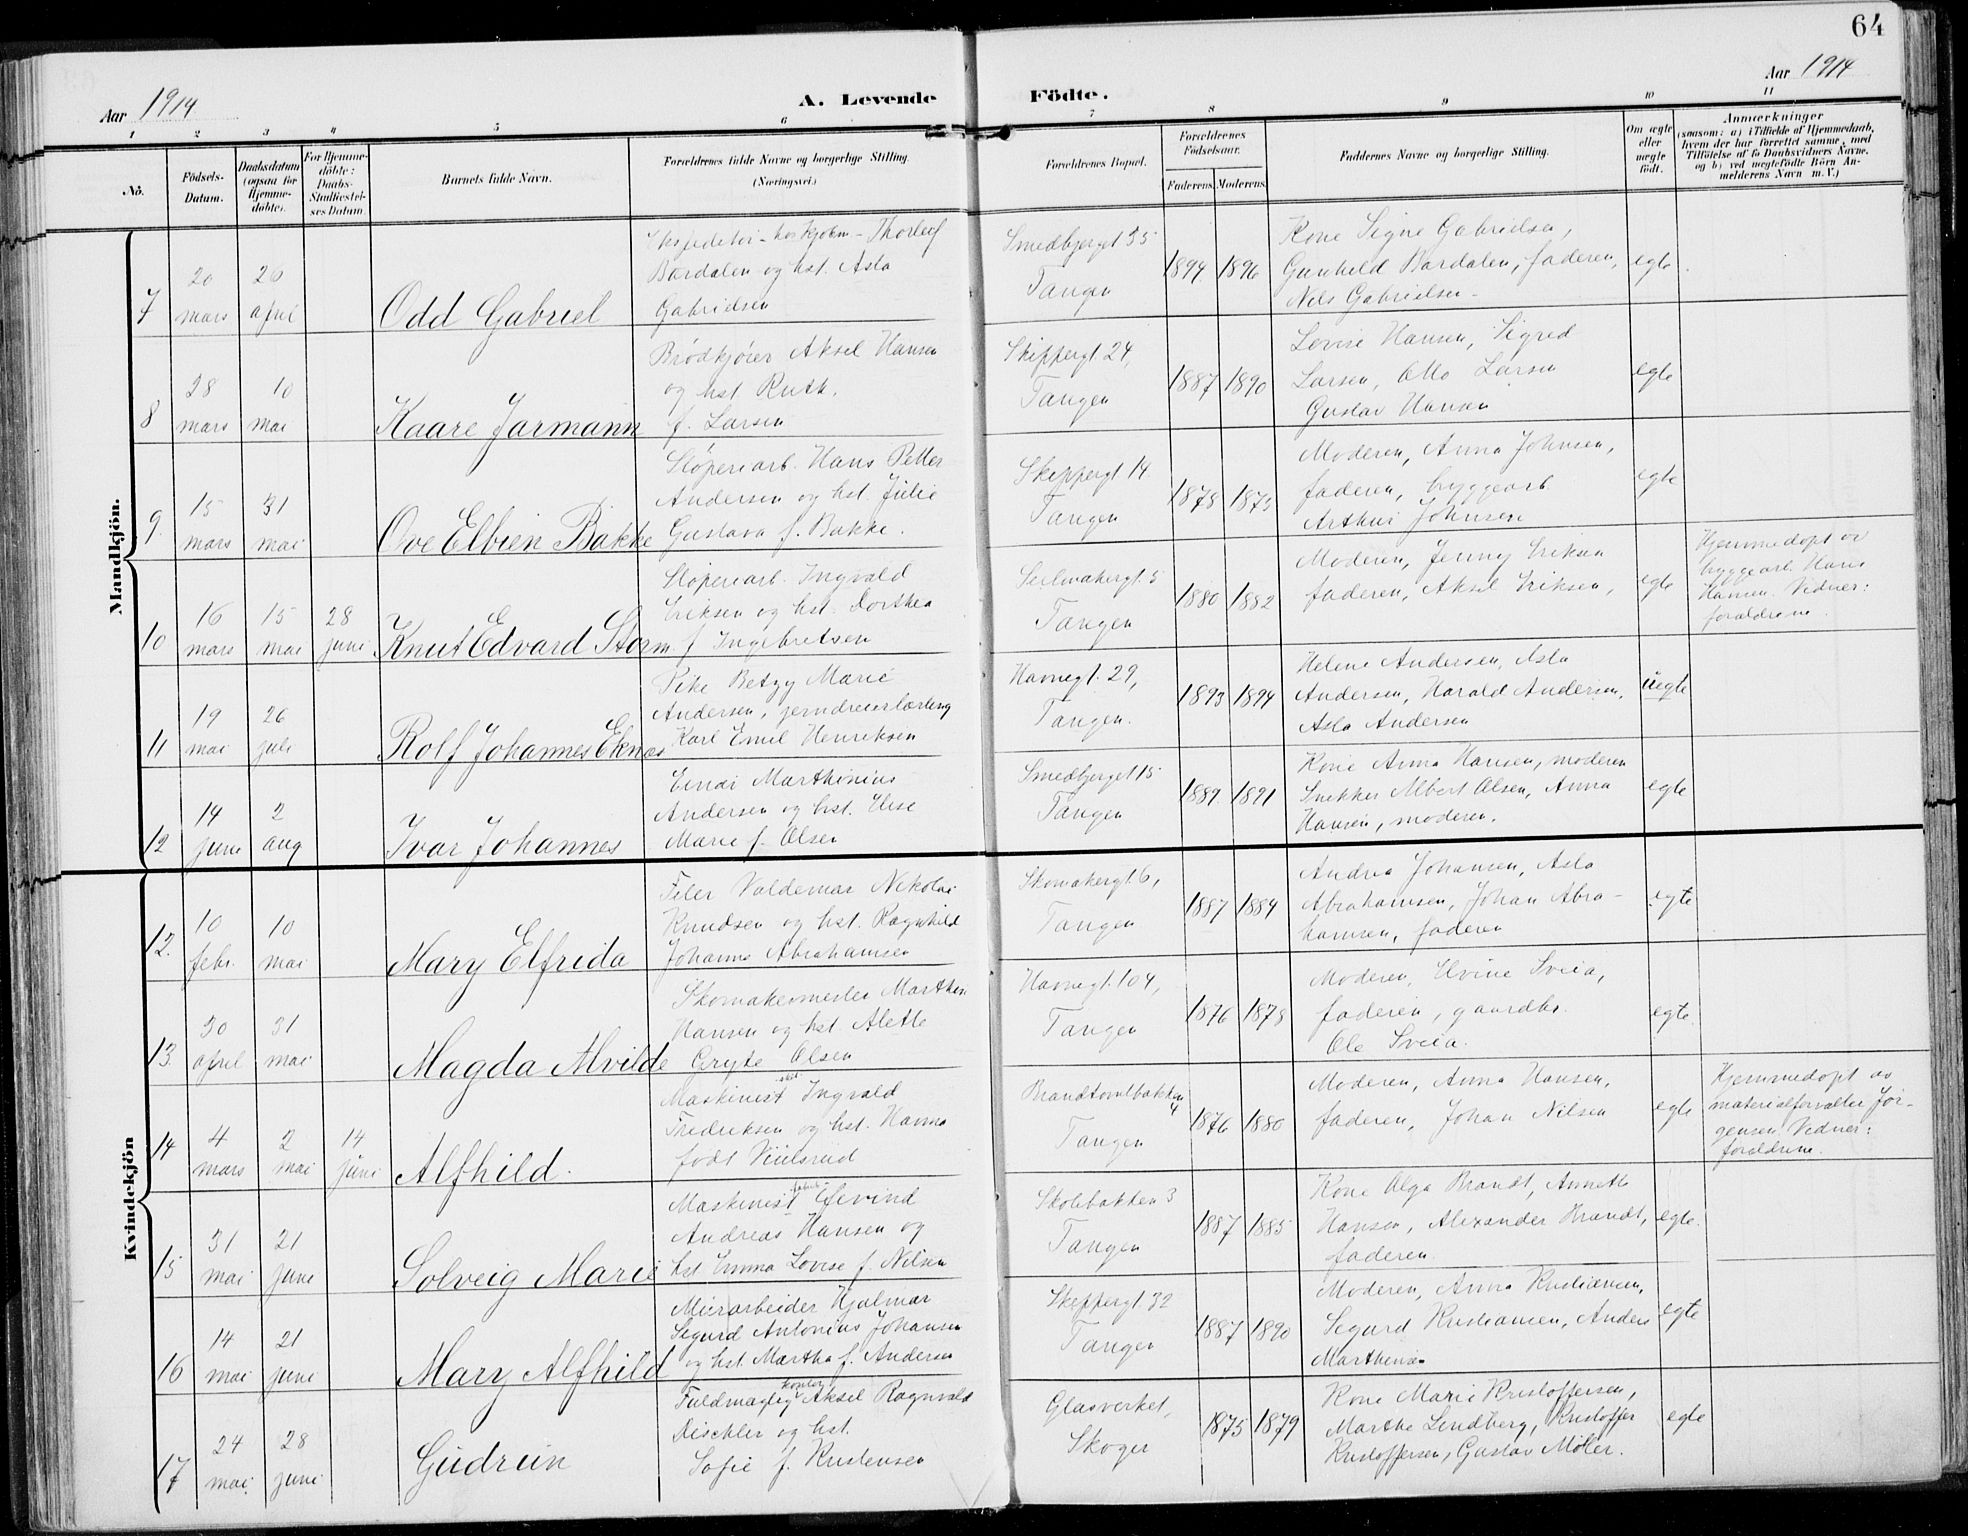 64
Aar 1914
A. Levende
Födte.
Aar 1914
1 2 3 4 5 6 7 8 9 10 11
No.
Födsels-
Datum.
Daabsdatum
(ogsaa for
Hjemme-
döbte).
For Hjemme-
döbte:
Daabs-
Stadfæstel-
ses Datum
Barnets fulde Navn.
Forældrenes fulde Navne og borgerlige Stilling.
(Næringsvei.)
Forældrenes Bopæl.
Forældrenes
Födselsaar.
Faderens.
Moderens.
Faddernes Navne og borgerlige Stilling.
Om ægte
eller
uegte
födt.
Anmærkninger
(saasom: a) i Tilfælde af Hjemmedaab,
hvem der har forrettet samme, med
Tilföielse af to Daabsvidners Navne,
og b) ved uegtefödte Börn An-
melderens Navn m.V.)
Mandkjön.
7
20
mars
26
april
Odd Gabriel
Thorleif
Bårdalen og hst. Asta
Gabrielsen
Smedbjerget 35
Tangen
1894 1896
Kone Signe Gabrielsen,
Gunhild Bårdalen, faderen,
Nils Gabrielsen
egte
8
28
mars
10
mai
Kaare Jarmann
Brödkjörer Aksel Hansen
og hst. Ruth.
f. Larsen
Skippergt. 24,
Tangen
1887 1890
Lovise Hansen, Sigrid
Larsen, Otto Larsen
Gustav Hansen
egte
9.
15
mars
31
mai
Ove Elbien Bakke
Støperiarb. Hans Petter
Andersen og hst. Julie
Gustava f. Bakke.
Skippergt 14.
Tangen
1878 1875
Moderen, Anna Johnsen,
faderen, byggearb
Arthur Johnsen
egte
10
16
mars
15
mai
28
juni
Knut Edvard Storm
Støperiarb. Ingvald
Eriksen og hst. Dorthea
f. Ingebretsen
Seilmakergt. 5
Tangen
1880 1882
Moderen, Jenny Eriksen
faderen, Aksel Eriksen,
egte
Hjemmedöpt av
byggearb. Hans
Hansen. Vidner:
forældrene.
11
19
mai
26
juli
Rolf Johannes Eknes
Pike Betzy Marie
Andersen, jerndreierlærling
Karl Emil Henriksen
Havnegt. 29,
Tangen.
1893 1894
Helene Andersen, Asta
Andersen, Harald Andersen,
Asta Andersen
uegte
12
14
juni
2
aug
Ivar Johannes
Marthinius
Andersen og hst. Elise
Marie f. Olsen
Smedbjerget 15
Tangen
1889. 1891
Kone Anna Hansen, moderen
Snekker Albert Olsen, Anna
Hansen, moderen.
egte
Kvindekjön
12.
10
febr.
10
mai
Mary Elfrida
Filer Valdemar Nikolai
Knudsen og hst. Ragnhild
Johanne Abrahamsen
Skomakergt. 6,
Tangen
1887 1884
Andrea Johansen, Asta
Abrahamsen, Johan Abra-
hamsen, faderen
egte
13.
30
april
31
mai
Magda Alvilde
Skomakermester Marthin
Hansen og hst. Alette
Gryte Olsen
Havnegt. 104,
Tangen
1876 1878
Moderen, Elvine Sveia,
faderen, gaardbr.
Ole Sveia.
egte.
14
4
mars
2
mai
14
juni
Alfhild.
Maskinist Ingvald
Fredriksen og hst. Hanna
født Viulsrud
4
Tangen
1876 1880
Moderen, Anna Hansen,
faderen, Johan Nilsen
egte
Hjemmedöpt av
materialforvalter Jør-
gensen. Vidner:
forældrene.
15
31
mai
21
juni
Solveig Marie
Maskinist Øivind
Andreas Hansen og
hst. Emma Lovise f. Nilsen
Skolebakken 3
Tangen
1887 1885
Kone Olga Brandt, Annette
Hansen, Alexander Brandt,
faderen.
egte.
16
14
mai
21
juni
Mary Alfhild
Murarbeider Hjalmar
Sigurd Antonius Johansen
og hst. Martha f. Andersen
Skippergt. 32
Tangen
1887 1890
Moderen, Anna Kristiansen,
Sigurd Kristiansen, Anders
Marthinsen
egte
17
24
mai.
28
juni
Gudrun
kontor
Fuldmægtig Aksel Ragnvald
Dischler og hst.
Sofie f. Kristensen
Glasverket,
Skoger
1875 1879
Kone Marie Kristoffersen,
Marthe Lindberg, Kristoffer
Kristoffersen, Gustav Møller.
egte